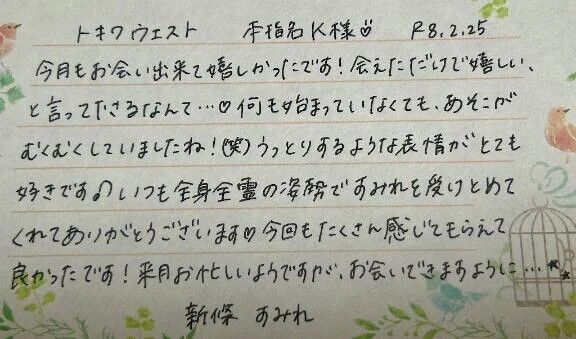 トキワウエスト　本指名K様♡　R8.2.25
今月もお会い出来て嬉しかったです！会えただけで嬉しい、
と言って下さるなんて…♡何も始まっていなくても、あそこが
むくむくしていましたね！(笑)うっとりするような表情がとても
好きです♪いつも全身全霊の姿勢ですみれを受けとめて
くれてありがとうございます♡今回もたくさん感じてもらえて
良かったです！来月お忙しいようですが、お会いできますように…
新條　すみれ